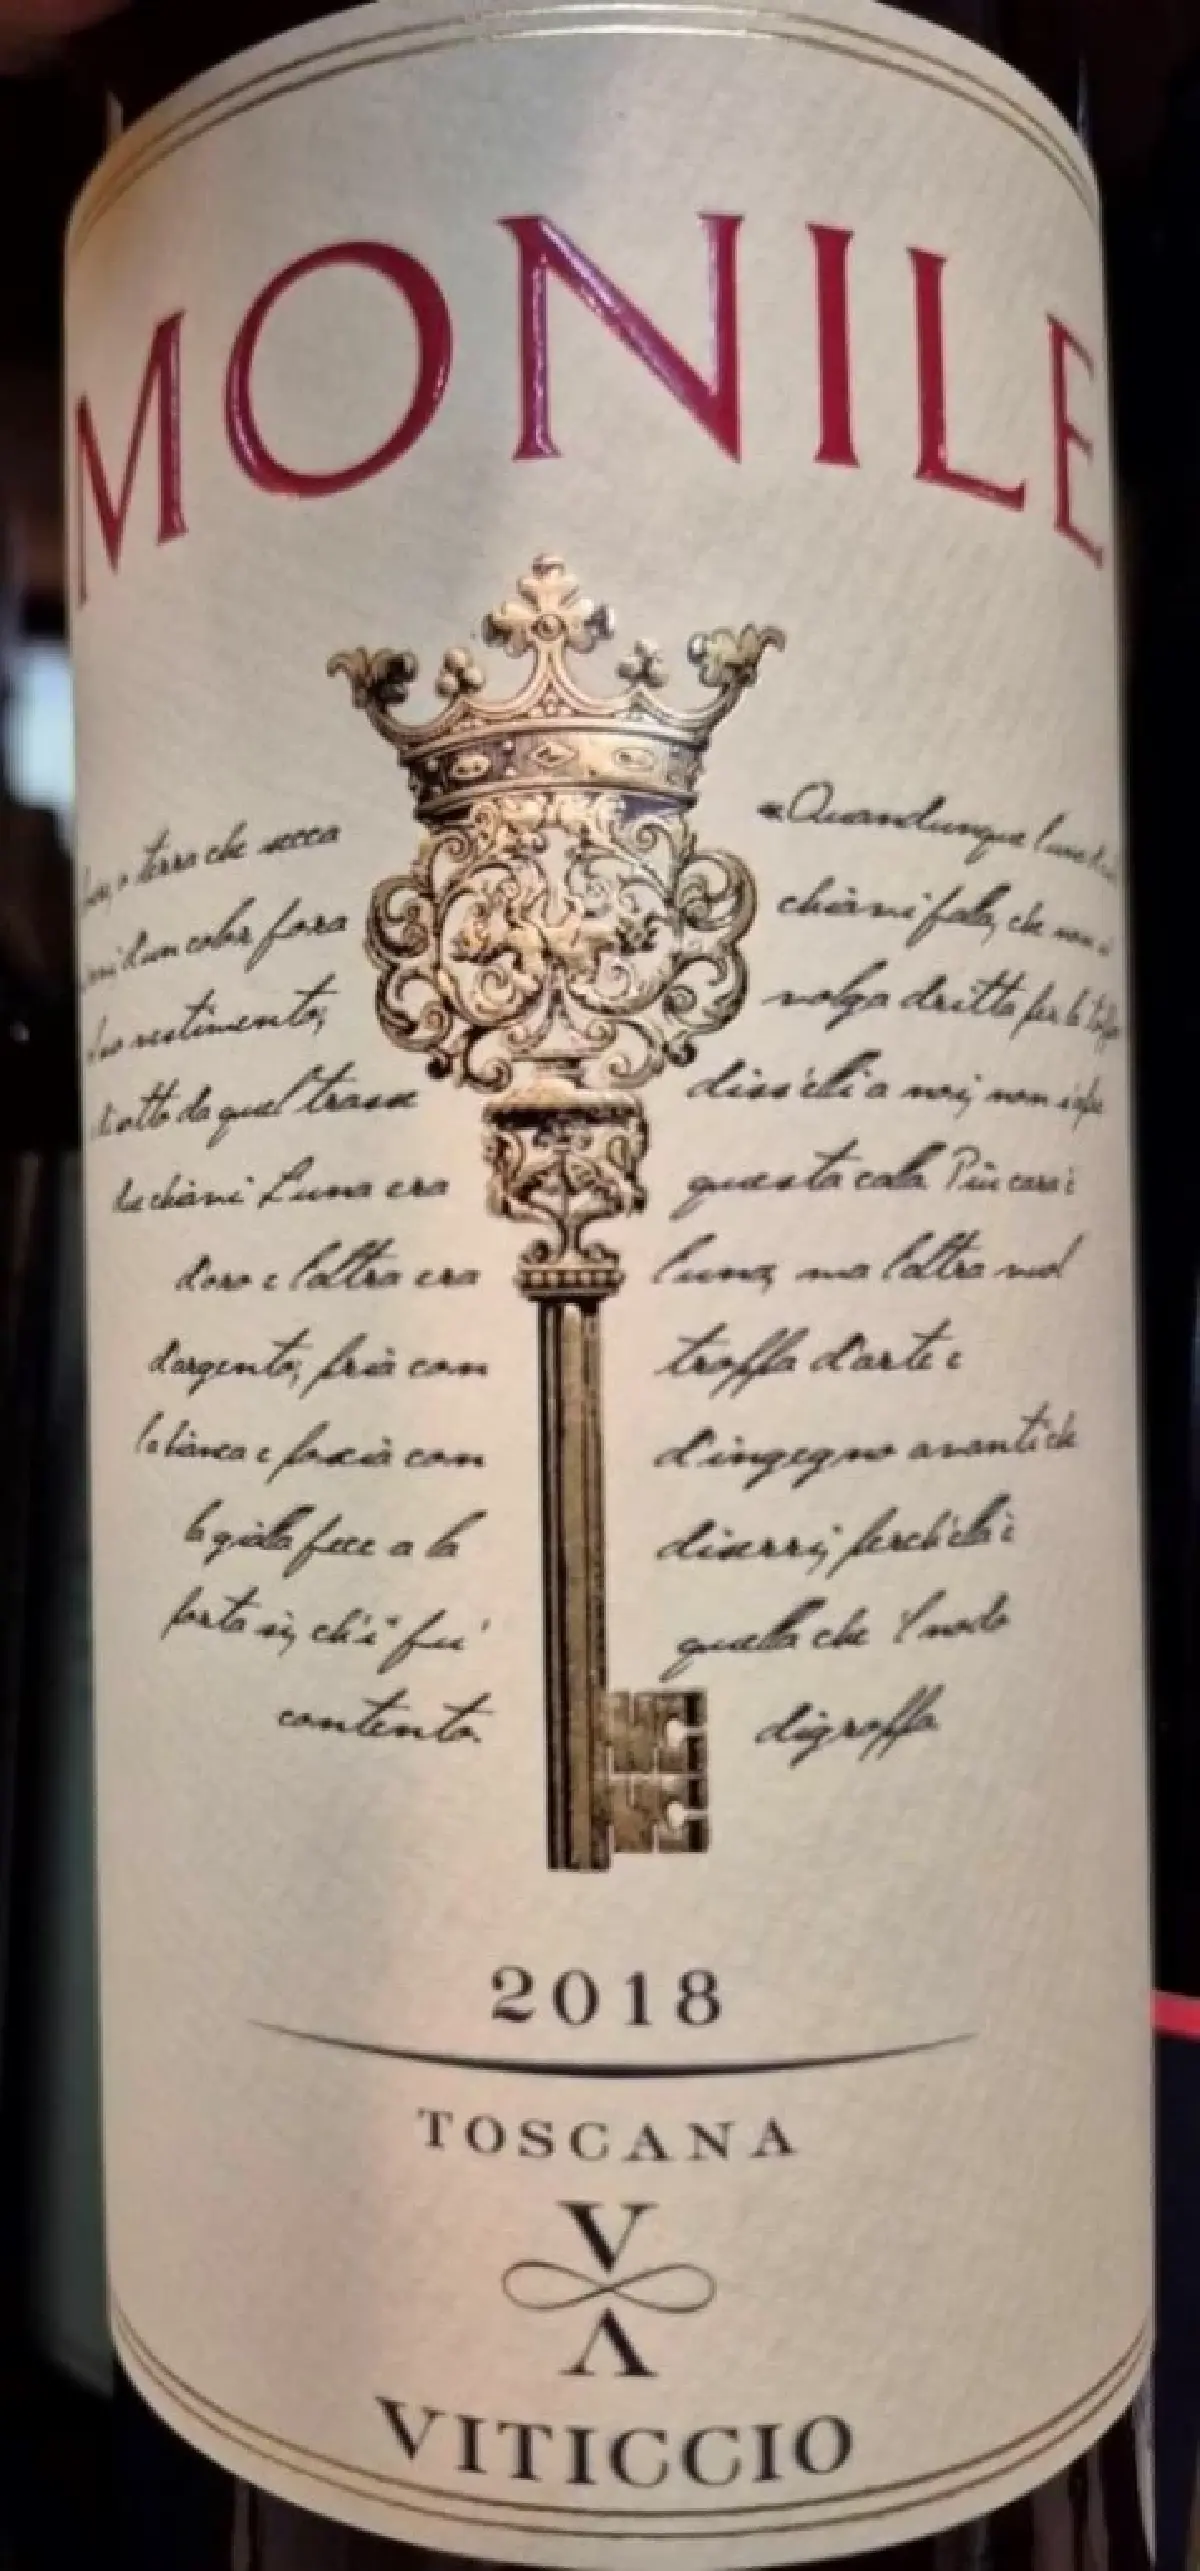 MONILE
o terra che secca
d'un color fora
suo vestimento;
di sotto da quel trasse
due chiavi L'una era
d'oro e l'altra era
d'argento; pria con
la bianca e poscia con
la gialla fece a la
porta sì, ch'i' fu'
contento.
«Quandunque l'una
chiavi falla, che non si
volga dritta per la toppa
diss'elli a noi, non s'apre
questa calla Più cara è
l'una; ma l'altra vuol
troppa d'arte e
d'ingegno avanti che
diserri, perch'ella è
quella che 'l nodo
digroppa.
2018
TOSCANA
V
V
VITICCIO